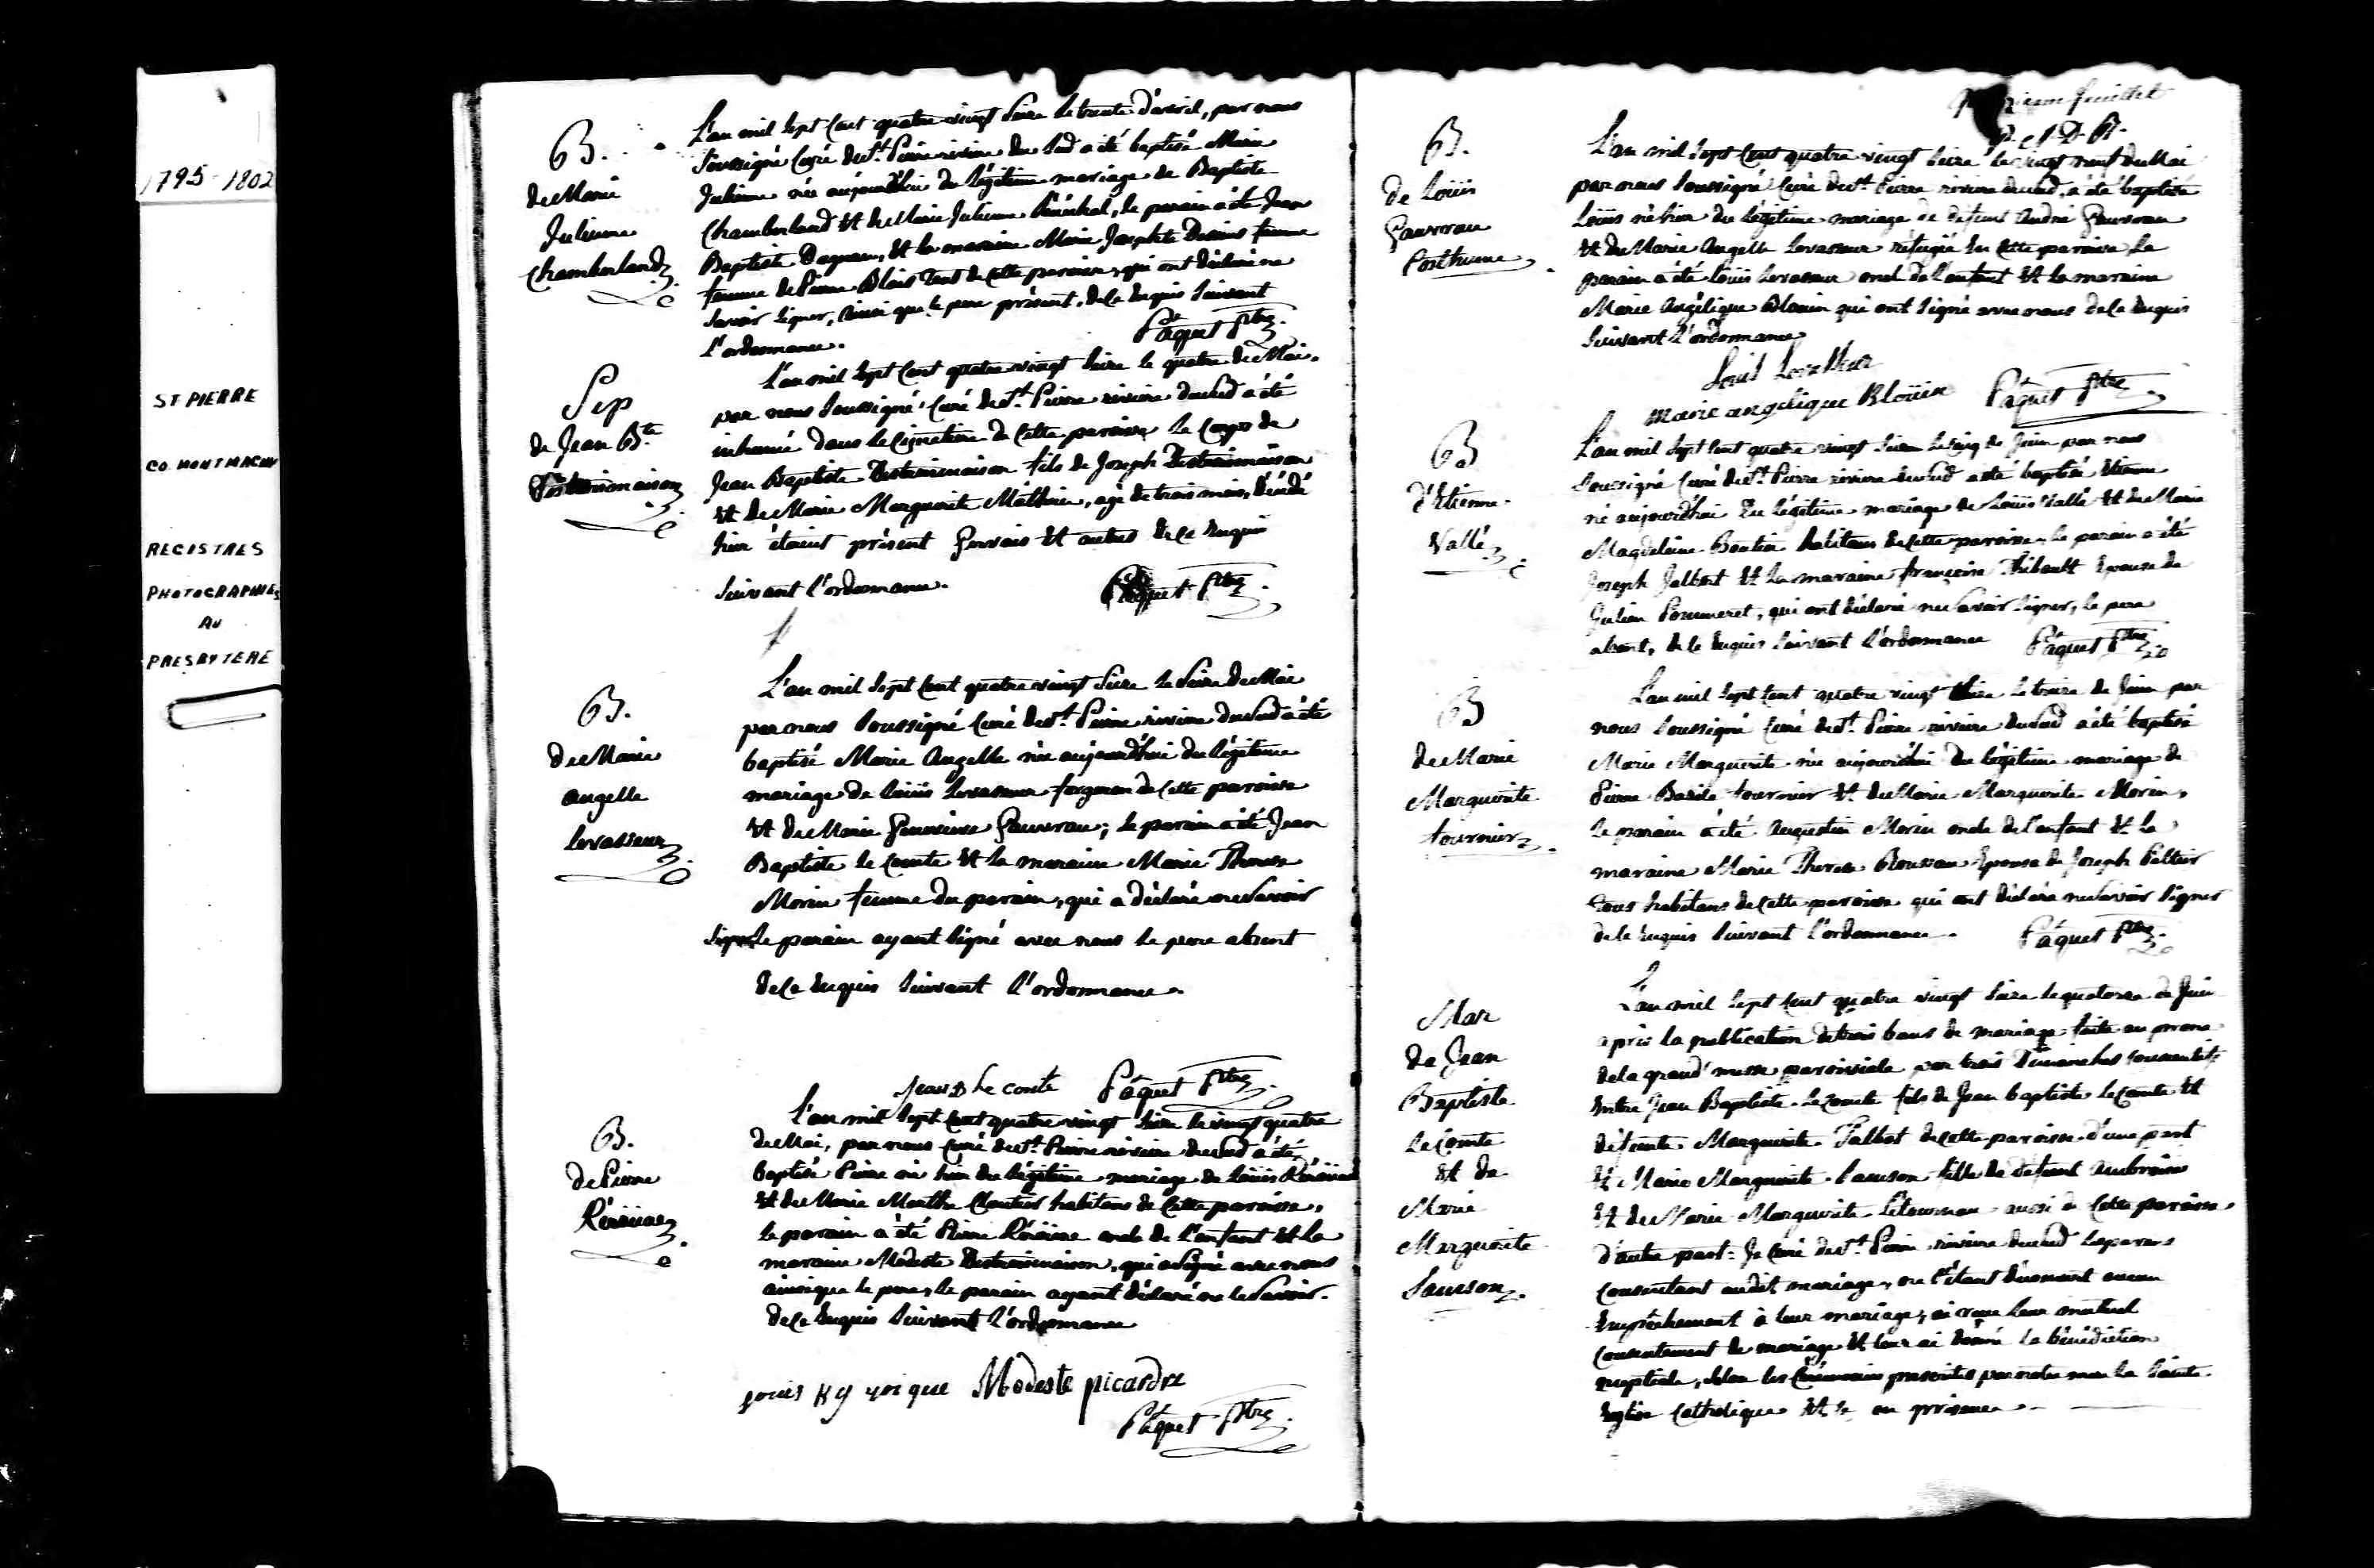 1795-1802
ST PIERRE
CO. MONTMAGNY
REGISTRES
PHOTOGRAPHIES
AU
PRESBYTERE
B.
de Marie
Julienne
Chamberland
L'an mil sept cent quatre vingt seize le trente d'avril, par nous
soussigné Curé de St. Pierre riviere du Sud a été baptisé Marie
Julienne née aujourdhui du légitime mariage de Baptiste
Chamberland et de Marie Julienne, le parain a été Jean
Baptiste Dagneau, et la maraine Marie Josephte femme
femme de Pierre Blais tous de cette paroisse, qui ont déclaré ne
savoir signer, ainsi que le pere présent, de ce requis suivant
l'ordonnance.
Pâquet Ptre
Sep
de Jean Bte
Destroismaison
L'an mil sept cent quatre vingt seize le quatre de Mai,
par nous soussigné Curé de St. Pierre riviere du Sud a été
inhumé dans le Cimetiere de cette paroisse le Corps de
Jean Baptiste Destroismaison fils de Joseph Destroismaison
et de Marie Marguerite Mathieu, agé de trois mois, décédé
hier étaient présent Gervais et autres de ce requis
suivant l'ordonnance.
Pâquet Ptre
B.
de Marie
Angelle
Levasseur
L'an mil sept cent quatre vingt seize le seize de Mai
par nous soussigné Curé de St. Pierre riviere du Sud a été
baptisé Marie Angelle née aujourd'hui du légitime
mariage de Loüis Levasseur forgeron de cette paroisse
et de Marie Genevieve Gauvreau; le parain a été Jean
Baptiste le Comte et la maraine Marie Therese
Morin femme du parain, qui a déclaré ne savoir
signer le parain ayant signé avec nous le pere absent
de ce requis suivant l'ordonnance.
Jean B Le conte Pâquet Ptre
B.
de Pierre
L'an mil sept cent quatre vingt seize le vingt quatre
de Mai, par nous Curé de St. Pierre riviere du Sud a été
baptisé Pierre né hier du légitime mariage de Loüis
et de Marie Marthe Cloutier habitans de cette paroisse,
le parain a été Pierre oncle de l'enfant et la
maraine Modeste Destroismaison, qui a signé avec nous
ainsi que le pere, le parain ayant déclaré ne le savoir.
de ce requis suivant l'ordonnance
Modeste picardre
Pâquet Ptre
feuillet
B.
de Loüis
Gauvreau
Posthume
L'an mil sept cent quatre vingt seize le vingt neuf de Mai
par nous soussigné Curé de St. Pierre riviere du Sud, a été baptisé
Loüis né hier du légitime mariage de défunt André Gauvreau
et de Marie Angelle Levasseur réfugiée en cette paroisse, le
parain a été Loüis Levasseur oncle de l'enfant et la maraine
Marie Angélique Bloüin qui ont signé avec nous de ce requis
suivant l'ordonnance
Louis Levasseur
marie angelique Bloüin Pâquet Ptre
B
d'Etienne
Vallé
L'an mil sept cent quatre vingt seize le cinq de Juin par nous
soussigné Curé de St. Pierre riviere du Sud a été baptisé Etienne
né aujourd'hui du légitime mariage de Loüis Vallé et de Marie
Magdeleine Boutin habitans de cette paroisse, le parain a été
Joseph Jalbert et la maraine françoise Thibault Epouse de
Julien Pommeret, qui ont déclaré ne savoir signer, le pere
absent, de ce requis suivant l'ordonnance Pâquet Ptre
B
de Marie
Marguerite
fournier
L'an mil sept cent quatre vingt seize le treize de Juin par
nous soussigné Curé de St. Pierre riviere du Sud a été baptisé
Marie Marguerite née aujourdhui du légitime mariage de
Pierre Basile fournier et de Marie Marguerite Morin,
le parain a été Augustin Morin oncle de l'enfant et la
maraine Marie Therese Rousseau Epouse de Joseph Peltier
tous habitans de cette paroisse qui ont déclaré ne savoir signer
de ce requis suivant l'ordonnance. Pâquet Ptre
Mar
de Jean
Baptiste
LeComte
et de
Marie
Marguerite
L'an mil sept cent quatre vingt seize le quatorze de Juin
après la publication de trois bans de mariage faite au prone
de la grand' messe paroissiale par trois Dimanches consécutifs
Entre Jean Baptiste leComte fils de Jean baptiste le Comte et
défunte Marguerite Talbot de cette paroisse d'une part
et Marie Marguerite fille de défunt Ambroise
et de Marie Marguerite Létourneau aussi de cette paroisse
d'autre part: Je Curé de St. Pierre riviere du Sud les parens
consentant au dit mariage, ne s'étant découvert aucun
Empêchement à leur mariage, ai reçu leur mutuel
Consentement de mariage et leur ai donné la bénédiction
nuptiale, selon les Cérémonies prescrites par notre mere la Sainte
Eglise Catholique et en présence